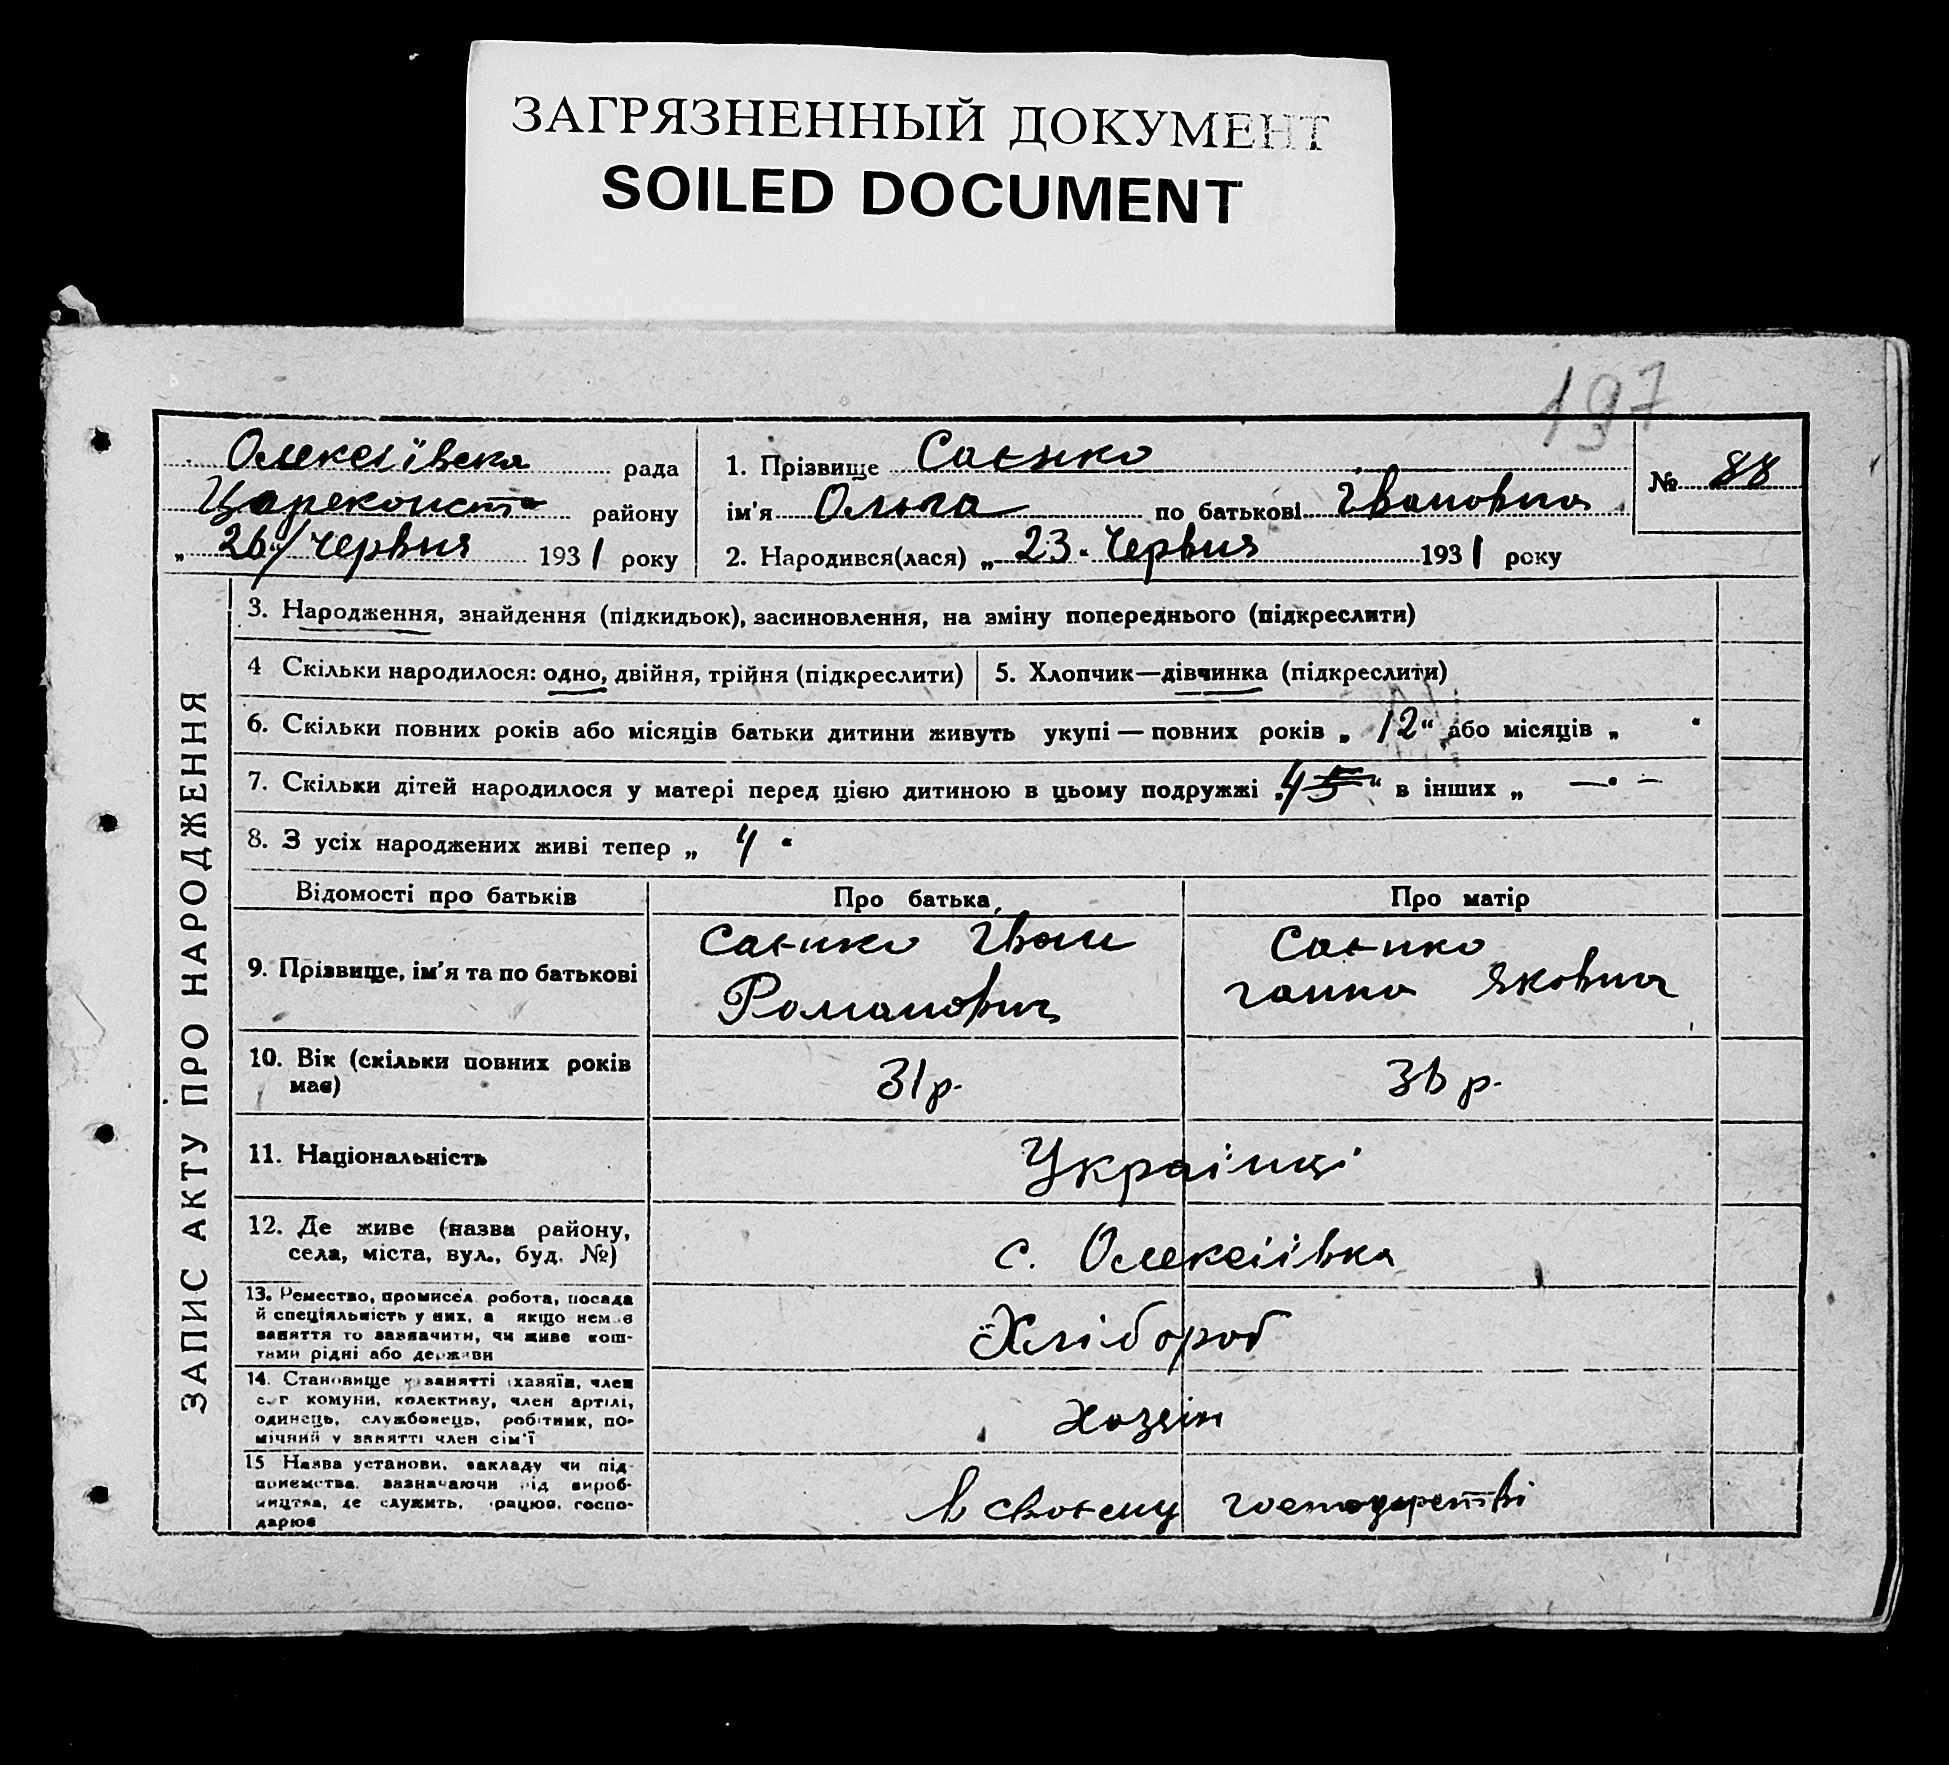 ЗАГРЯЗНЕННЫЙ ДОКУМЕНТ
SOILED DOCUMENT
197
Олексіївська рада
Цареконст району
„ 26/ червня 1931 року
1. Прізвище Саєнко
ім'я Ольга по батькові Івановна
2. Народився(лася) „ 23 " Червня 1931 року
№ 88
ЗАПИС АКТУ ПРО НАРОДЖЕННЯ
3. Народження, знайдення (підкидьок), засиновлення, на зміну попереднього (підкреслити)
4 Скільки народилося: одно, двійня, трійня (підкреслити)
5. Хлопчик—дівчинка (підкреслити)
6. Скільки повних років або місяців батьки дитини живуть укупі — повних років „ 12 “ або місяців „ “
7. Скільки дітей народилося у матері перед цією дитиною в цьому подружжі „ 4 5 “ в інших „ — “ —
8. З усіх народжених живі тепер „ 4 “
Відомості про батьків Про батька Про матір
9. Прізвище, ім'я та по батькові
Саєнко Іван
Романович
Саєнко
Ганна Яковна
10. Вік (скільки повних років
має)
31 р.
36 р.
11. Національність
Українці
12. Де живе (назва району,
села, міста, вул., буд. №)
с. Олексіівка
13. Ремество, промисел робота, посада
й спеціяльність у них, а якщо немає
заняття то зазначити, чи живе кош-
тами рідні або держави
Хлібороб
14. Становище у занятті хазяїн, член
с.-г комуни, колективу, член артілі,
одинець, службовець, робітник, по-
мічний у занятті член сім'ї
Хозяін
15 Назва установи, закладу чи під-
приємства, зазначаючи рід вироб-
ництва, де служить, працює, госпо-
дарює
в своєму господарстві